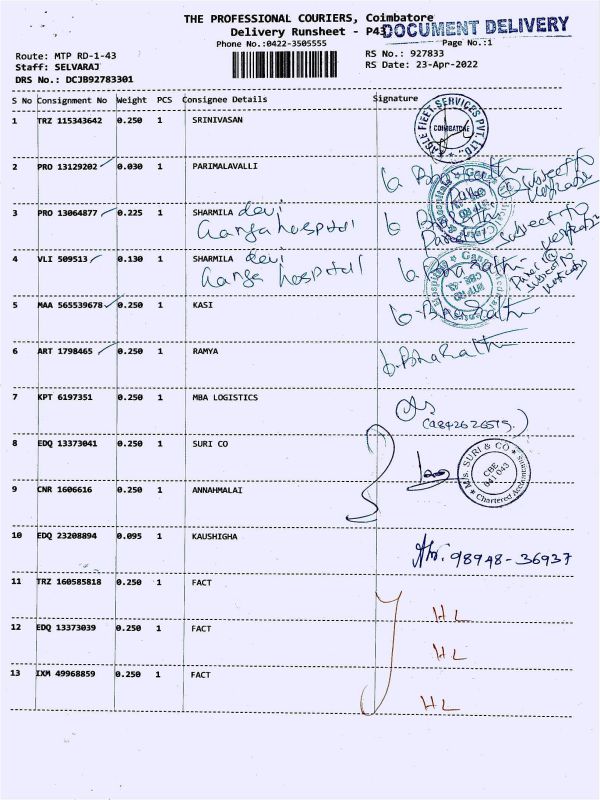 THE PROFESSIONAL COURIERS, Coimbatore
Delivery Runsheet - P43
DOCUMENT DELIVERY
Phone No.:0422-3505555
Page No.:1
Route: MTP RD-1-43
RS No.: 927833
Staff: SELVARAJ
RS Date: 23-Apr-2022
DRS No.: DCJB92783301
S No Consignment No Weight PCS Consignee Details Signature
1 TRZ 115343642 0.250 1 SRINIVASAN
FLEET SERVICES PVT. LTD.
COIMBATORE
2 PRO 13129202 0.030 1 PARIMALAVALLI
Subject to
3 PRO 13064877 0.225 1 SHARMILA devi
Ganga hospital
Subject to
4 VLI 509513 0.130 1 SHARMILA devi
Ganga hospital
b. Bharathi
5 MAA 565539678 0.250 1 KASI
b. Bharathi
6 ART 1798465 0.250 1 RAMYA
b. Bharathi
7 KPT 6197351 0.250 1 MBA LOGISTICS
8 EDQ 13373041 0.250 1 SURI CO
M/s. SURI & CO
CBE
641 043
Chartered Accountants
9 CNR 1606616 0.250 1 ANNAHMALAI
10 EDQ 23208894 0.095 1 KAUSHIGHA
98948-36937
11 TRZ 160585818 0.250 1 FACT
HL
12 EDQ 13373039 0.250 1 FACT
HL
13 IXM 49968859 0.250 1 FACT
HL